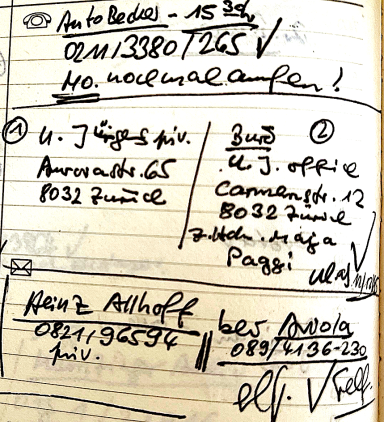 Auto Becker - 15 30h
0211/3380/265 ✓
Mo. nochmal anrufen!
① U. Jürgens priv.
Aurorastr. 65
8032 Zürich
Büro ②
U. J. office
Carmenstr. 12
8032 Zürich
z. Hdn. Maja
Paggi
Heinz Allhoff
0821/96594
priv.
bei Arvola
089/4136-230